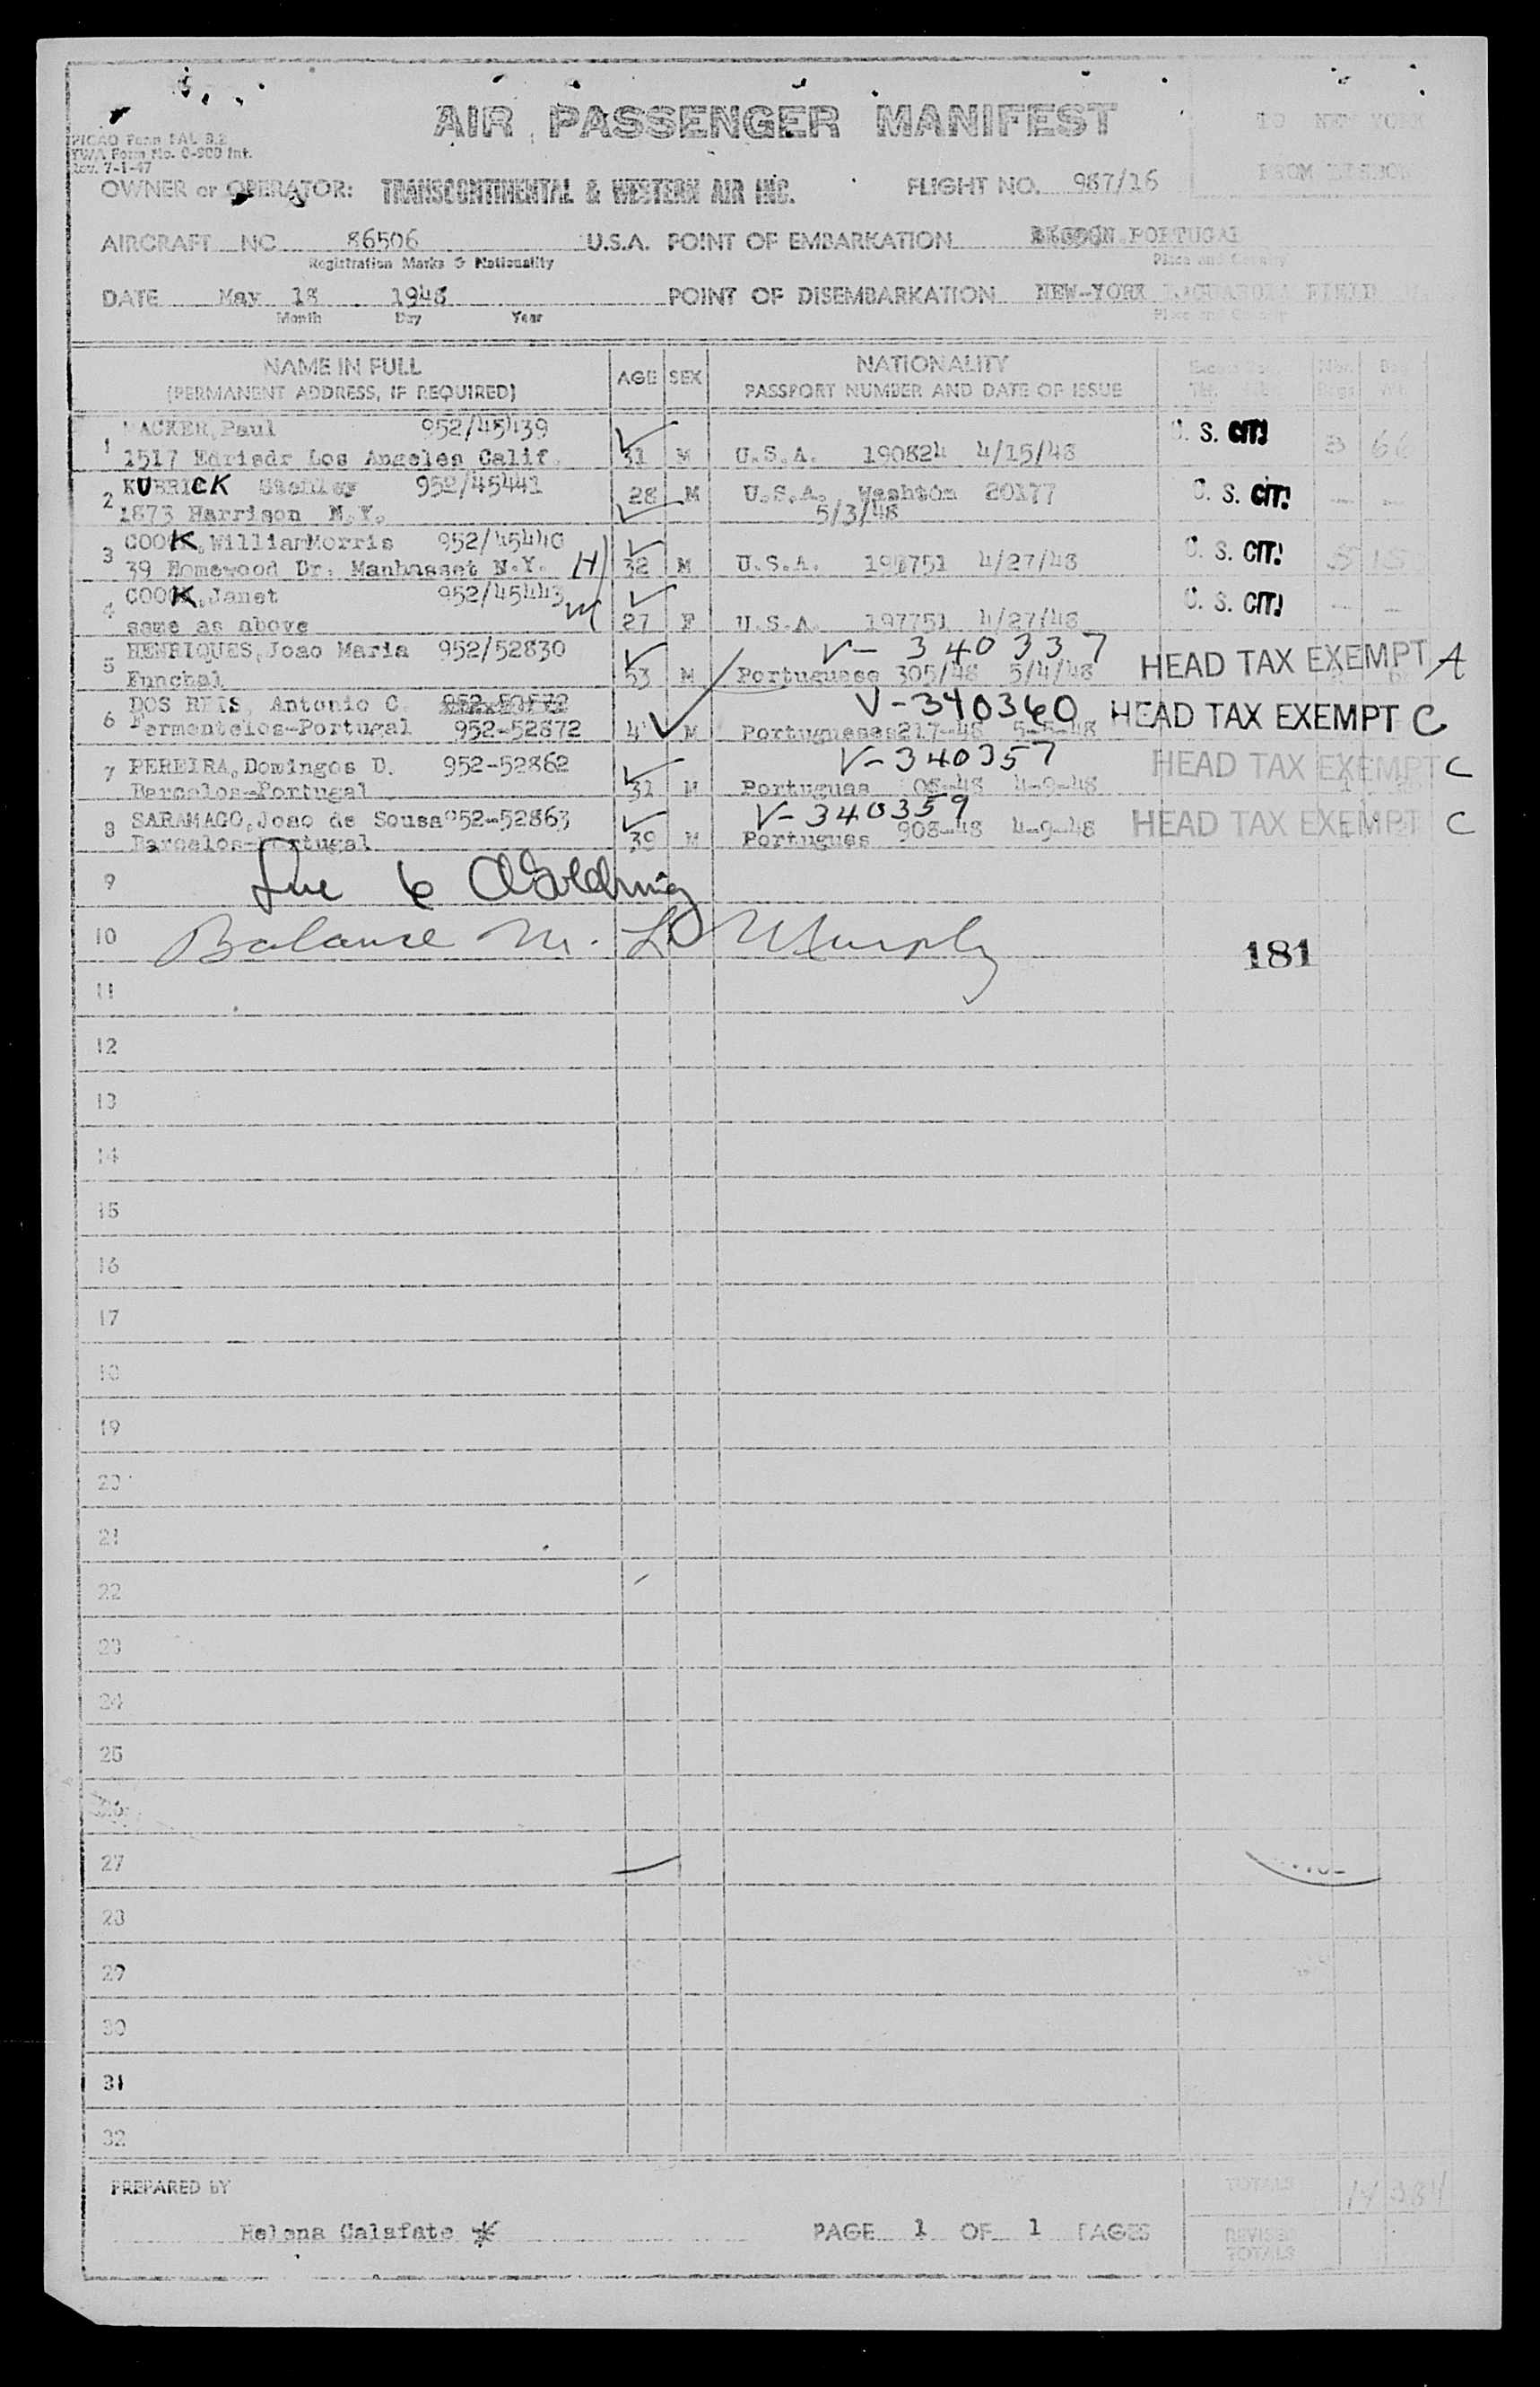 AIR PASSENGER MANIFEST
PICAO Form FAL 3.2
TWA Form No. 0-900 Int.
Rev. 7-1-47
TO NEW YORK
FROM LISBON
OWNER or OPERATOR: TRANSCONTINENTAL & WESTERN AIR INC. FLIGHT NO. 987/16
AIRCRAFT NC 86506 U.S.A. POINT OF EMBARKATION PORTUGAL
Registration Marks & Nationality Place and Country
DATE May 18 1948 POINT OF DISEMBARKATION NEW-YORK LAGUARDIA FIELD
Month Day Year Place and Country
NAME IN FULL AGE SEX NATIONALITY
(PERMANENT ADDRESS, IF REQUIRED) PASSPORT NUMBER AND DATE OF ISSUE
1 ACKER, Paul 952/45439 U. S. CIT!
1517 Los Angeles Calif. 31 M U.S.A. 190824 4/15/48 3 66
2 KUBRICK Stanley 952/45441 28 M U.S.A. Washton 20177 U. S. CIT! — —
1873 Harrison N.Y. 5/3/48
3 COOK, William Morris 952/45440 U. S. CIT!
39 Homewood Dr. Manhasset N.Y. H 32 M U.S.A. 4/27/48
4 COOK, Janet 952/45443 U. S. CIT! — —
same as above W 27 F U.S.A. 197751 4/27/48
5 HENRIQUES, Joao Maria 952/52830 V- 340337
Funchal 53 M Portuguese 305/48 5/4/48 HEAD TAX EXEMPT A
6 DOS REIS, Antonio C. V-340360 HEAD TAX EXEMPT C
Fermentelos-Portugal 952-52872 M Portuguese 217-48 5-5-48
7 PEREIRA, Domingos D. 952-52862 V-340357 HEAD TAX EXEMPT C
Barcelos-Portugal 31 M 4-9-48
8 SARAMAGO, Joao de Sousa 952-52863 V-340359 HEAD TAX EXEMPT C
Barcelos-Portugal 39 M Portugues 908-48 4-9-48
9 6
10 Balance M. L. Murphy 181
11
12
13
14
15
16
17
18
19
20
21
22
23
24
25
27
28
29
30
31
32
PREPARED BY TOTALS 14 384
Helena Calafate PAGE 1 OF 1 PAGES REVISED
TOTALS